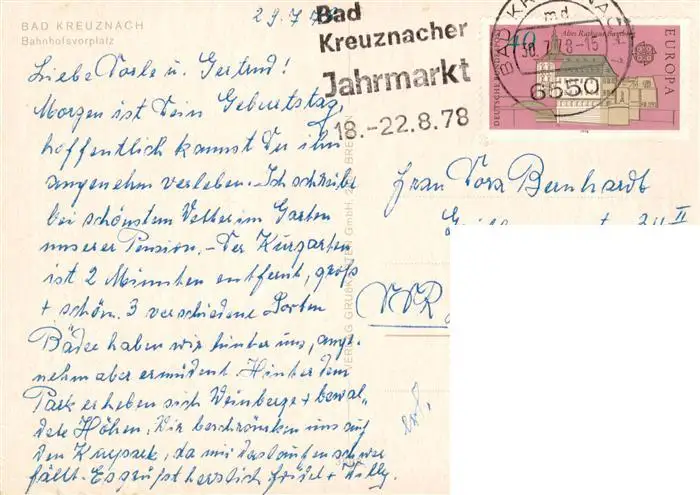 BAD KREUZNACH
Bahnhofsvorplatz
29.7.78
Liebe Dorle u. Gertrud!
Morgen ist Dein Geburtstag,
hoffentlich kannst Du ihn
angenehm verleben. Ich schreibe
bei schönstem Wetter im Garten
unserer Pension. – Der Kurgarten
ist 2 Minuten entfernt, groß
+ schön. 3 verschiedene Sorten
Bäder haben wir hinter uns, ange-
nehm aber ermüdend. Hinter dem
Park erheben sich Weinberge + bewal-
dete Höhen. Wir beschränken uns auf
den Kurpark, da mir das laufen schwer
fällt. Es grüßt herzlich Friedel + Willy.
VERLAG GRUSS GmbH, BREMEN
Bad
Kreuznacher
Jahrmarkt
18.-22.8.78
BAD KREUZNACH 1
md
30.7.78-15
6550
40
Altes Rathaus Bamberg
DEUTSCHE BUNDESPOST
EUROPA
Frau Dora Bernhardt
II
DDR